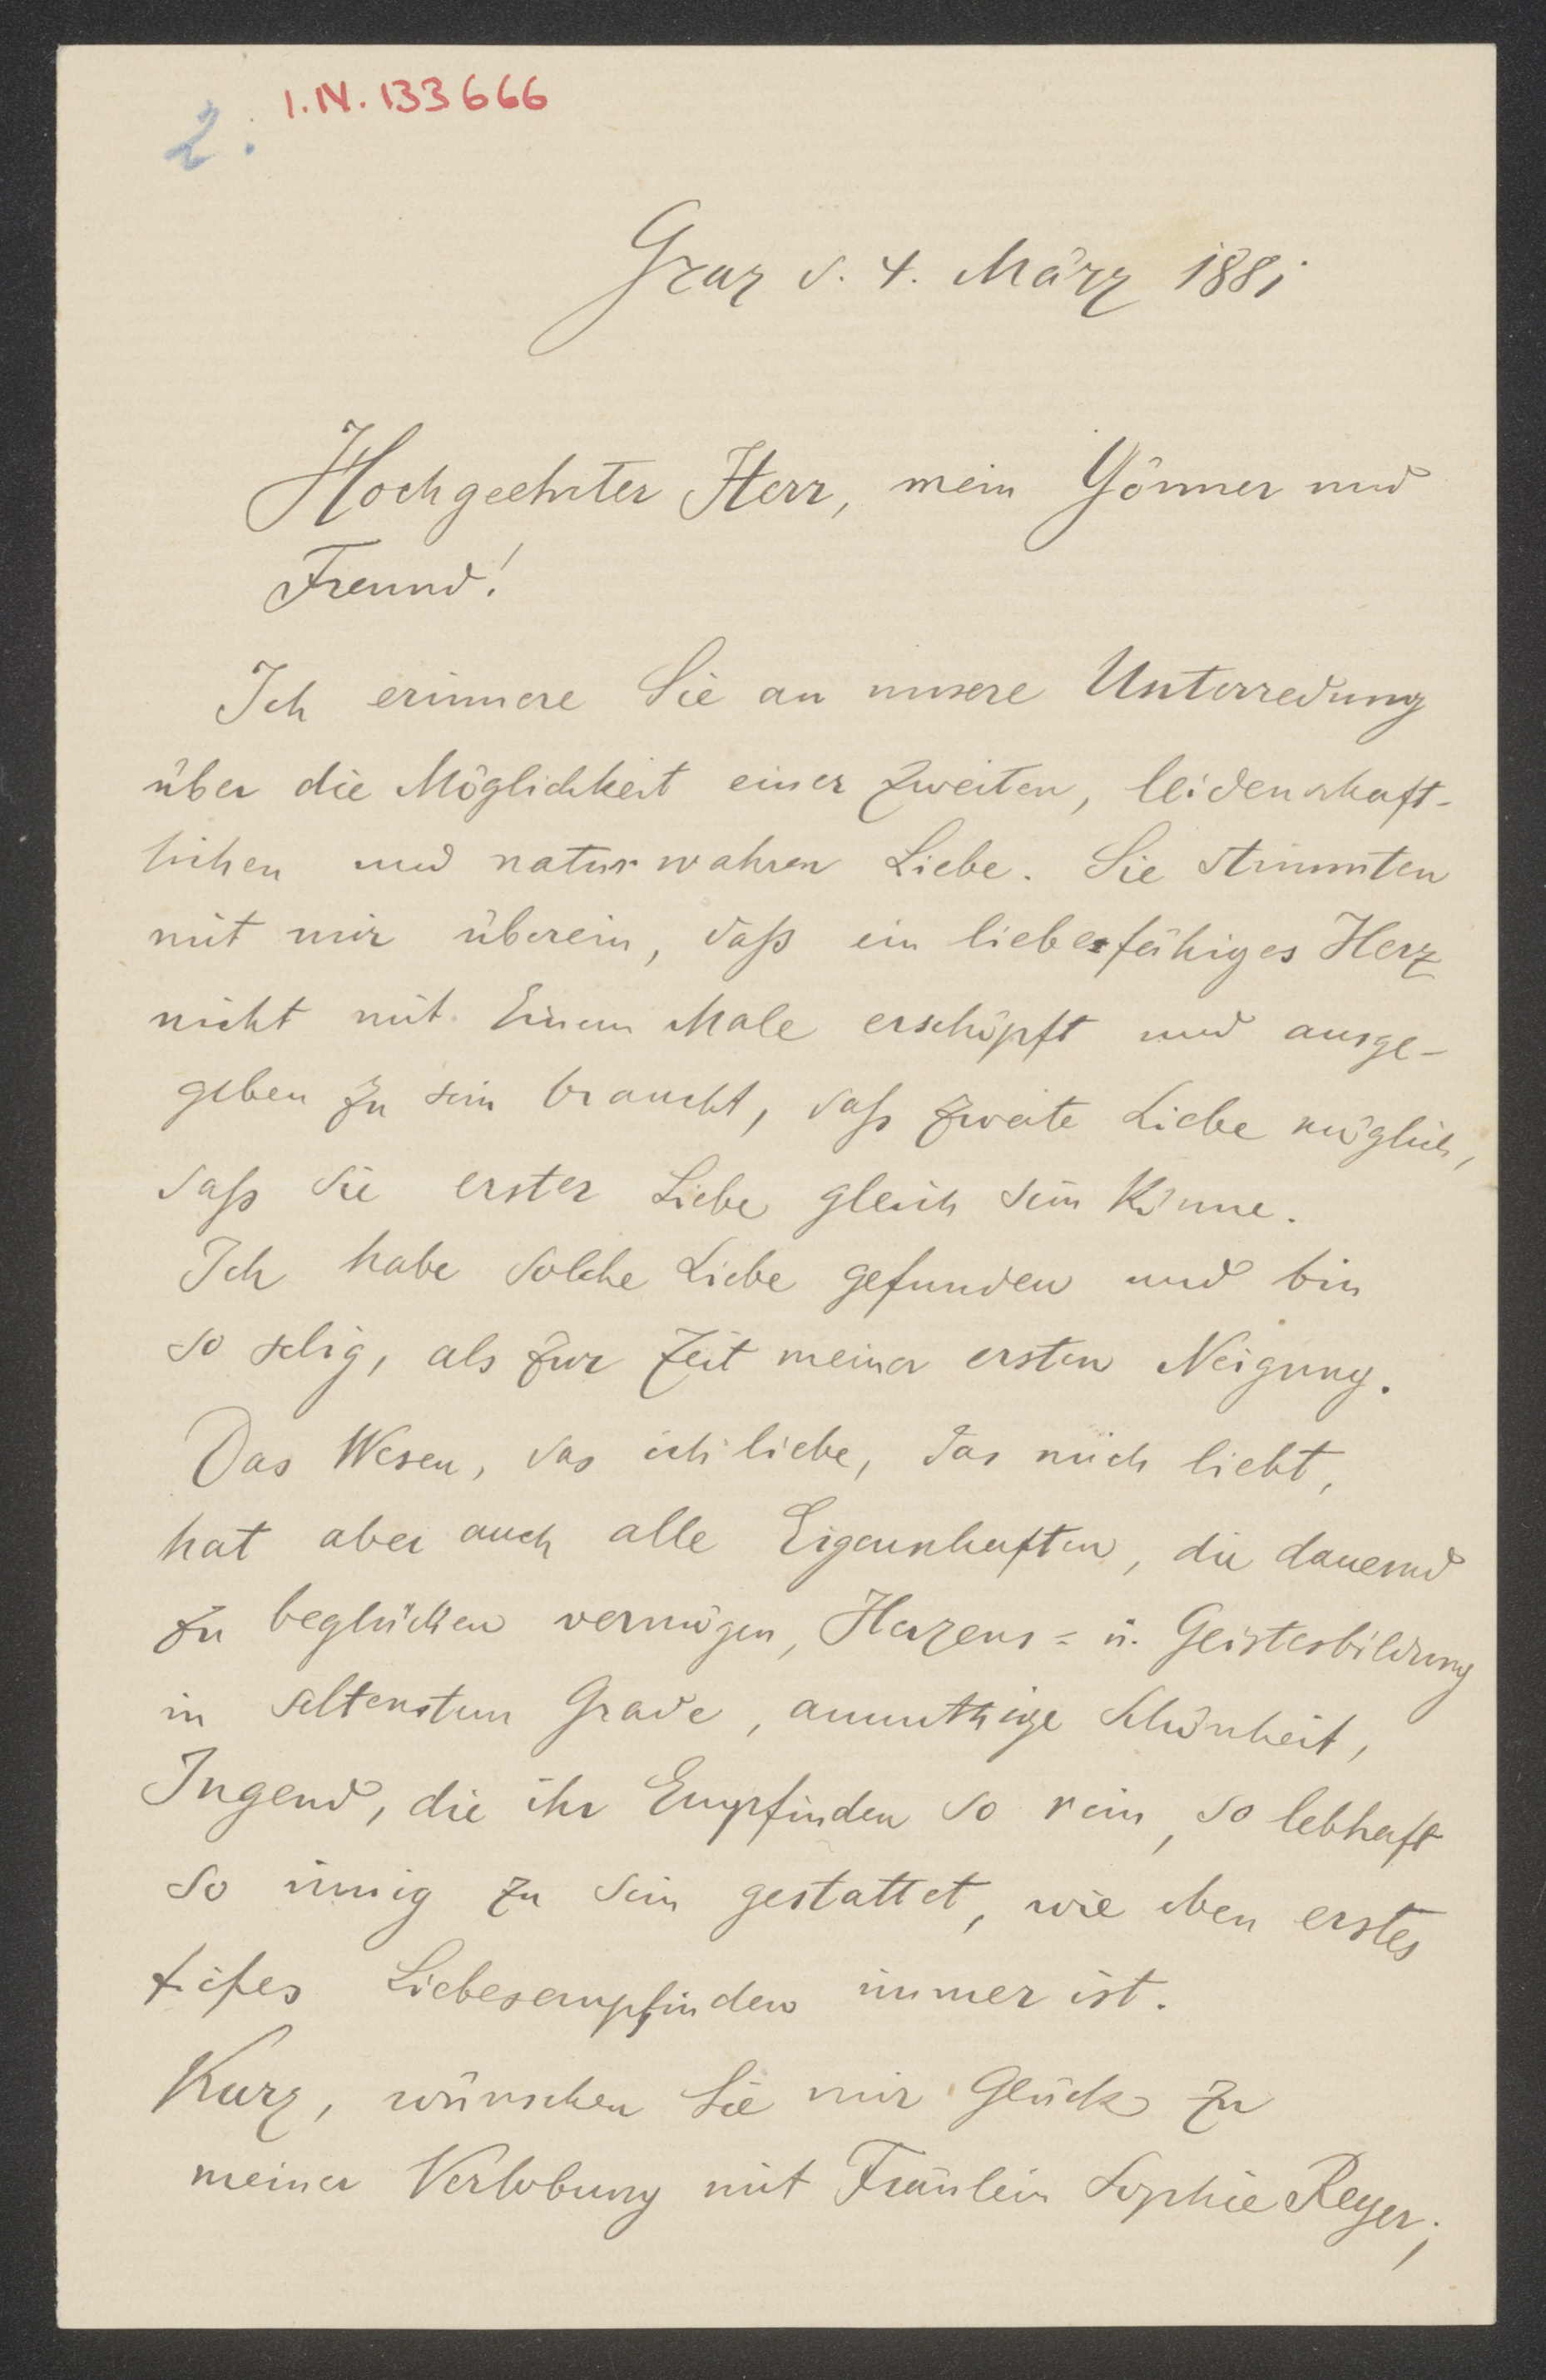 I.N. 133666
2.
Graz d. 4. März 1881
Hochgeehrter Herr, mein Gönner und
Freund!
Ich erinnere Sie an unsere Unterredung
über die Möglichkeit einer zweiten, leidenschaft-
lichen und naturwahren Liebe. Sie stimmten
mit mir überein, daß ein liebesfähiges Herz
nicht mit Einem Male erschöpft und ausge-
geben zu sein braucht, daß zweite Liebe möglich,
daß sie erster Liebe gleich sein könne.
Ich habe solche Liebe gefunden und bin
so selig, als zur Zeit meiner ersten Neigung.
Das Wesen, das ich liebe, das mich liebt,
hat aber auch alle Eigenschaften, die dauernd
zu beglücken vermögen, Herzens- u. Geistesbildung
in seltenstem Grade, anmuthige Schönheit,
Jugend, die ihr Empfinden so rein, so lebhaft
so innig zu sein gestattet, wie eben erstes
tiefes Liebesempfinden immer ist.
Kurz, wünschen Sie mir Glück zu
meiner Verlobung mit Fräulein Sophie Reyer;